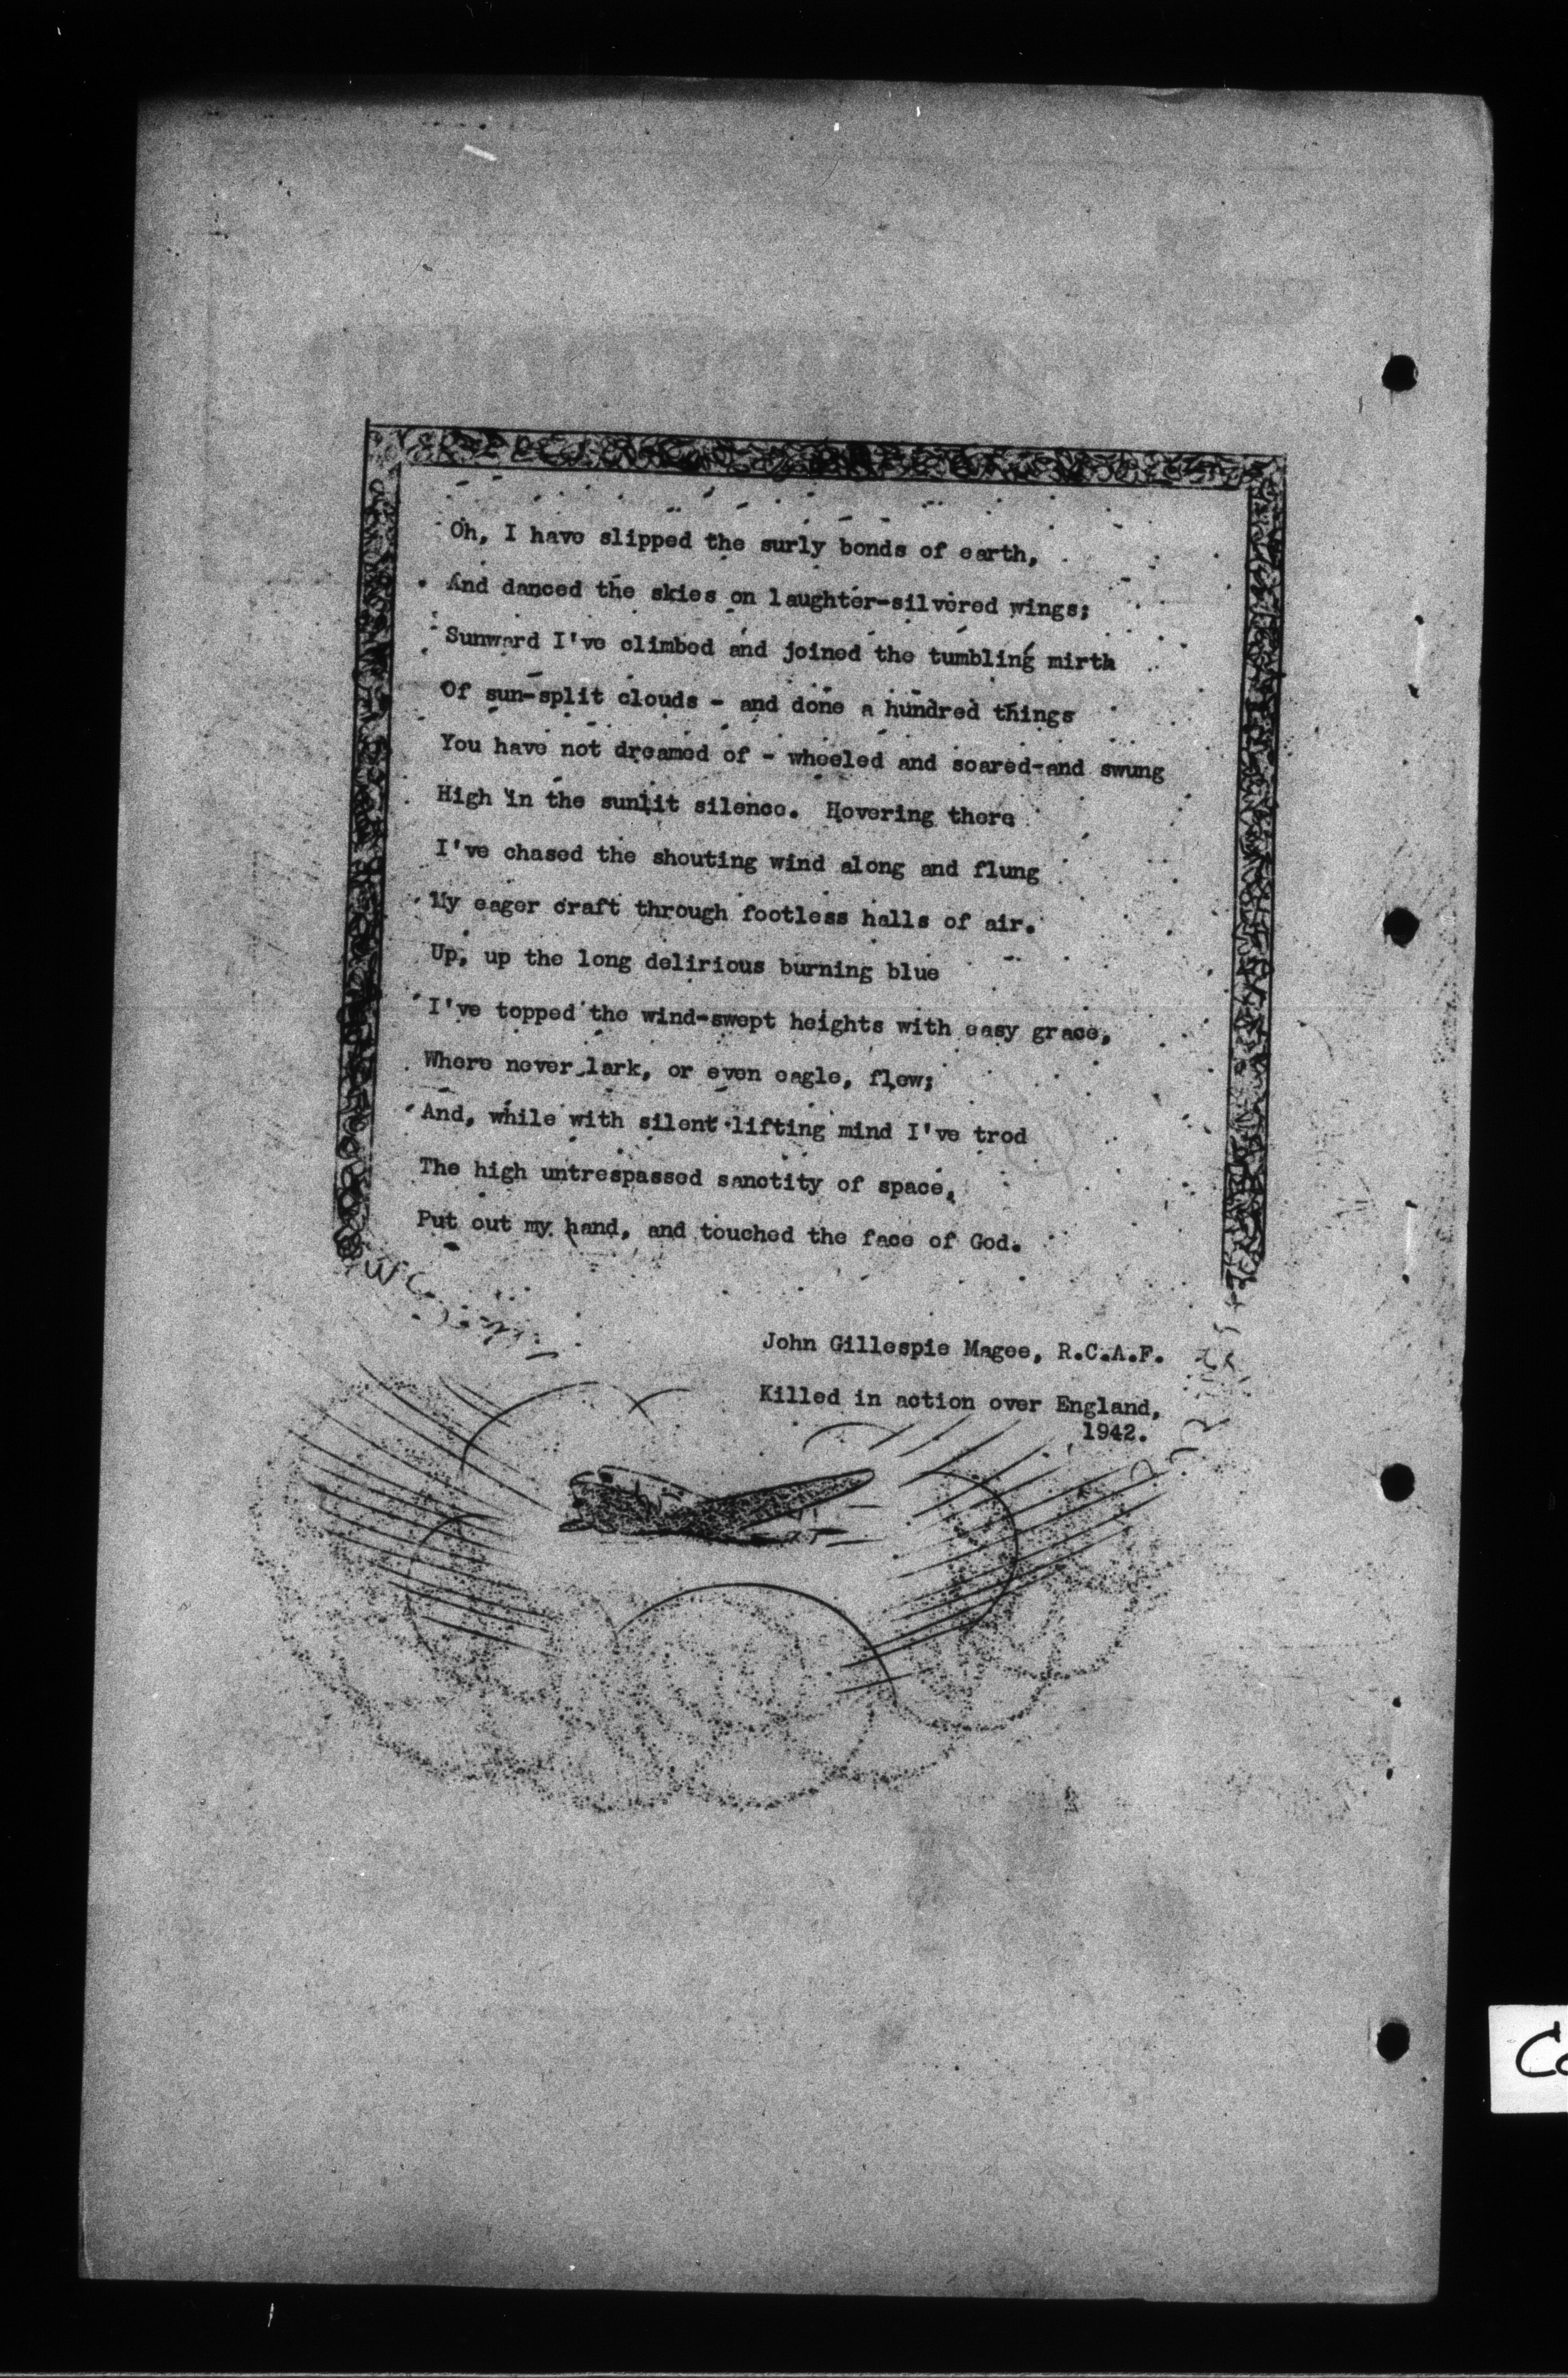 Oh, I have slipped the surly bonds of earth,
And danced the skies on laughter-silvered wings;
Sunward I've climbed and joined the tumbling mirth
Of sun-split clouds - and done a hundred things
You have not dreamed of - wheeled and soared-and swung
High in the sunlit silence. Hovering there
I've chased the shouting wind along and flung
My eager craft through footless halls of air.
Up, up the long delirious burning blue
I've topped the wind-swept heights with easy grace,
Where never lark, or even eagle, flew;
And, while with silent lifting mind I've trod
The high untrespassed sanctity of space,
Put out my hand, and touched the face of God.
John Gillespie Magee, R.C.A.F.
Killed in action over England,
1942.